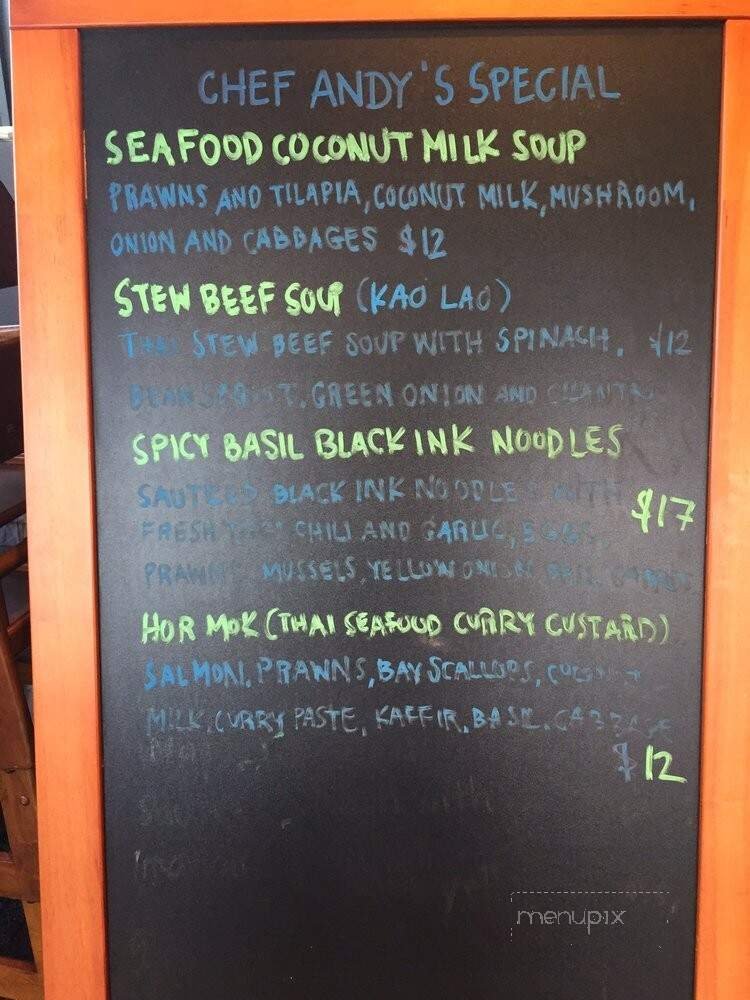 CHEF ANDY'S SPECIAL
SEAFOOD COCONUT MILK SOUP
PRAWNS AND TILAPIA, COCONUT MILK, MUSHROOM,
ONION AND CABBAGES $12
STEW BEEF SOUP (KAO LAO)
THAI STEW BEEF SOUP WITH SPINACH, $12
BEANSPROUT, GREEN ONION AND CILANTRO
SPICY BASIL BLACK INK NOODLES
SAUTEED BLACK INK NOODLES WITH
$17
FRESH THAI CHILI AND GARLIC, EGGS,
PRAWNS, MUSSELS, YELLOW ONION, BASIL
HOR MOK (THAI SEAFOOD CURRY CUSTARD)
SALMON, PRAWNS, BAY SCALLOPS, COCONUT
MILK, CURRY PASTE, KAFFIR, BASIL, CABBAGE
$12
menupix